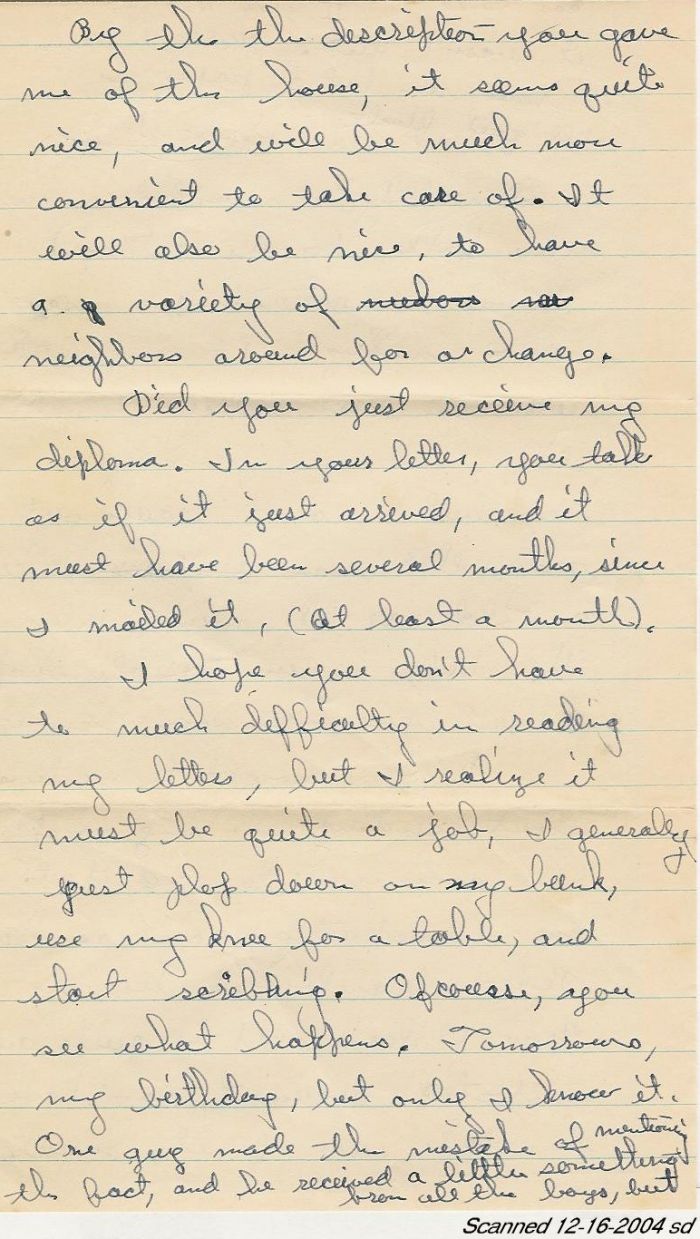 By the the description you gave
me of the house, it seems quite
nice, and will be much more
convenient to take care of. It
will also be nice, to have
a variety of
neighbors around for a change.
Did you just receive my
diploma. In your letter, you talk
as if it just arrived, and it
must have been several months, since
I mailed it, (at least a month).
I hope you don't have
to much difficulty in reading
my letters, but I realize it
must be quite a job, I generally
just plop down on my bunk,
use my knee for a table, and
start scribbling. Ofcourse, you
see what happens. Tomorrows,
my birthday, but only I know it.
One guy made the mistake of mentioning
the fact, and he received a little something
from all the boys, but
Scanned 12-16-2004 sd